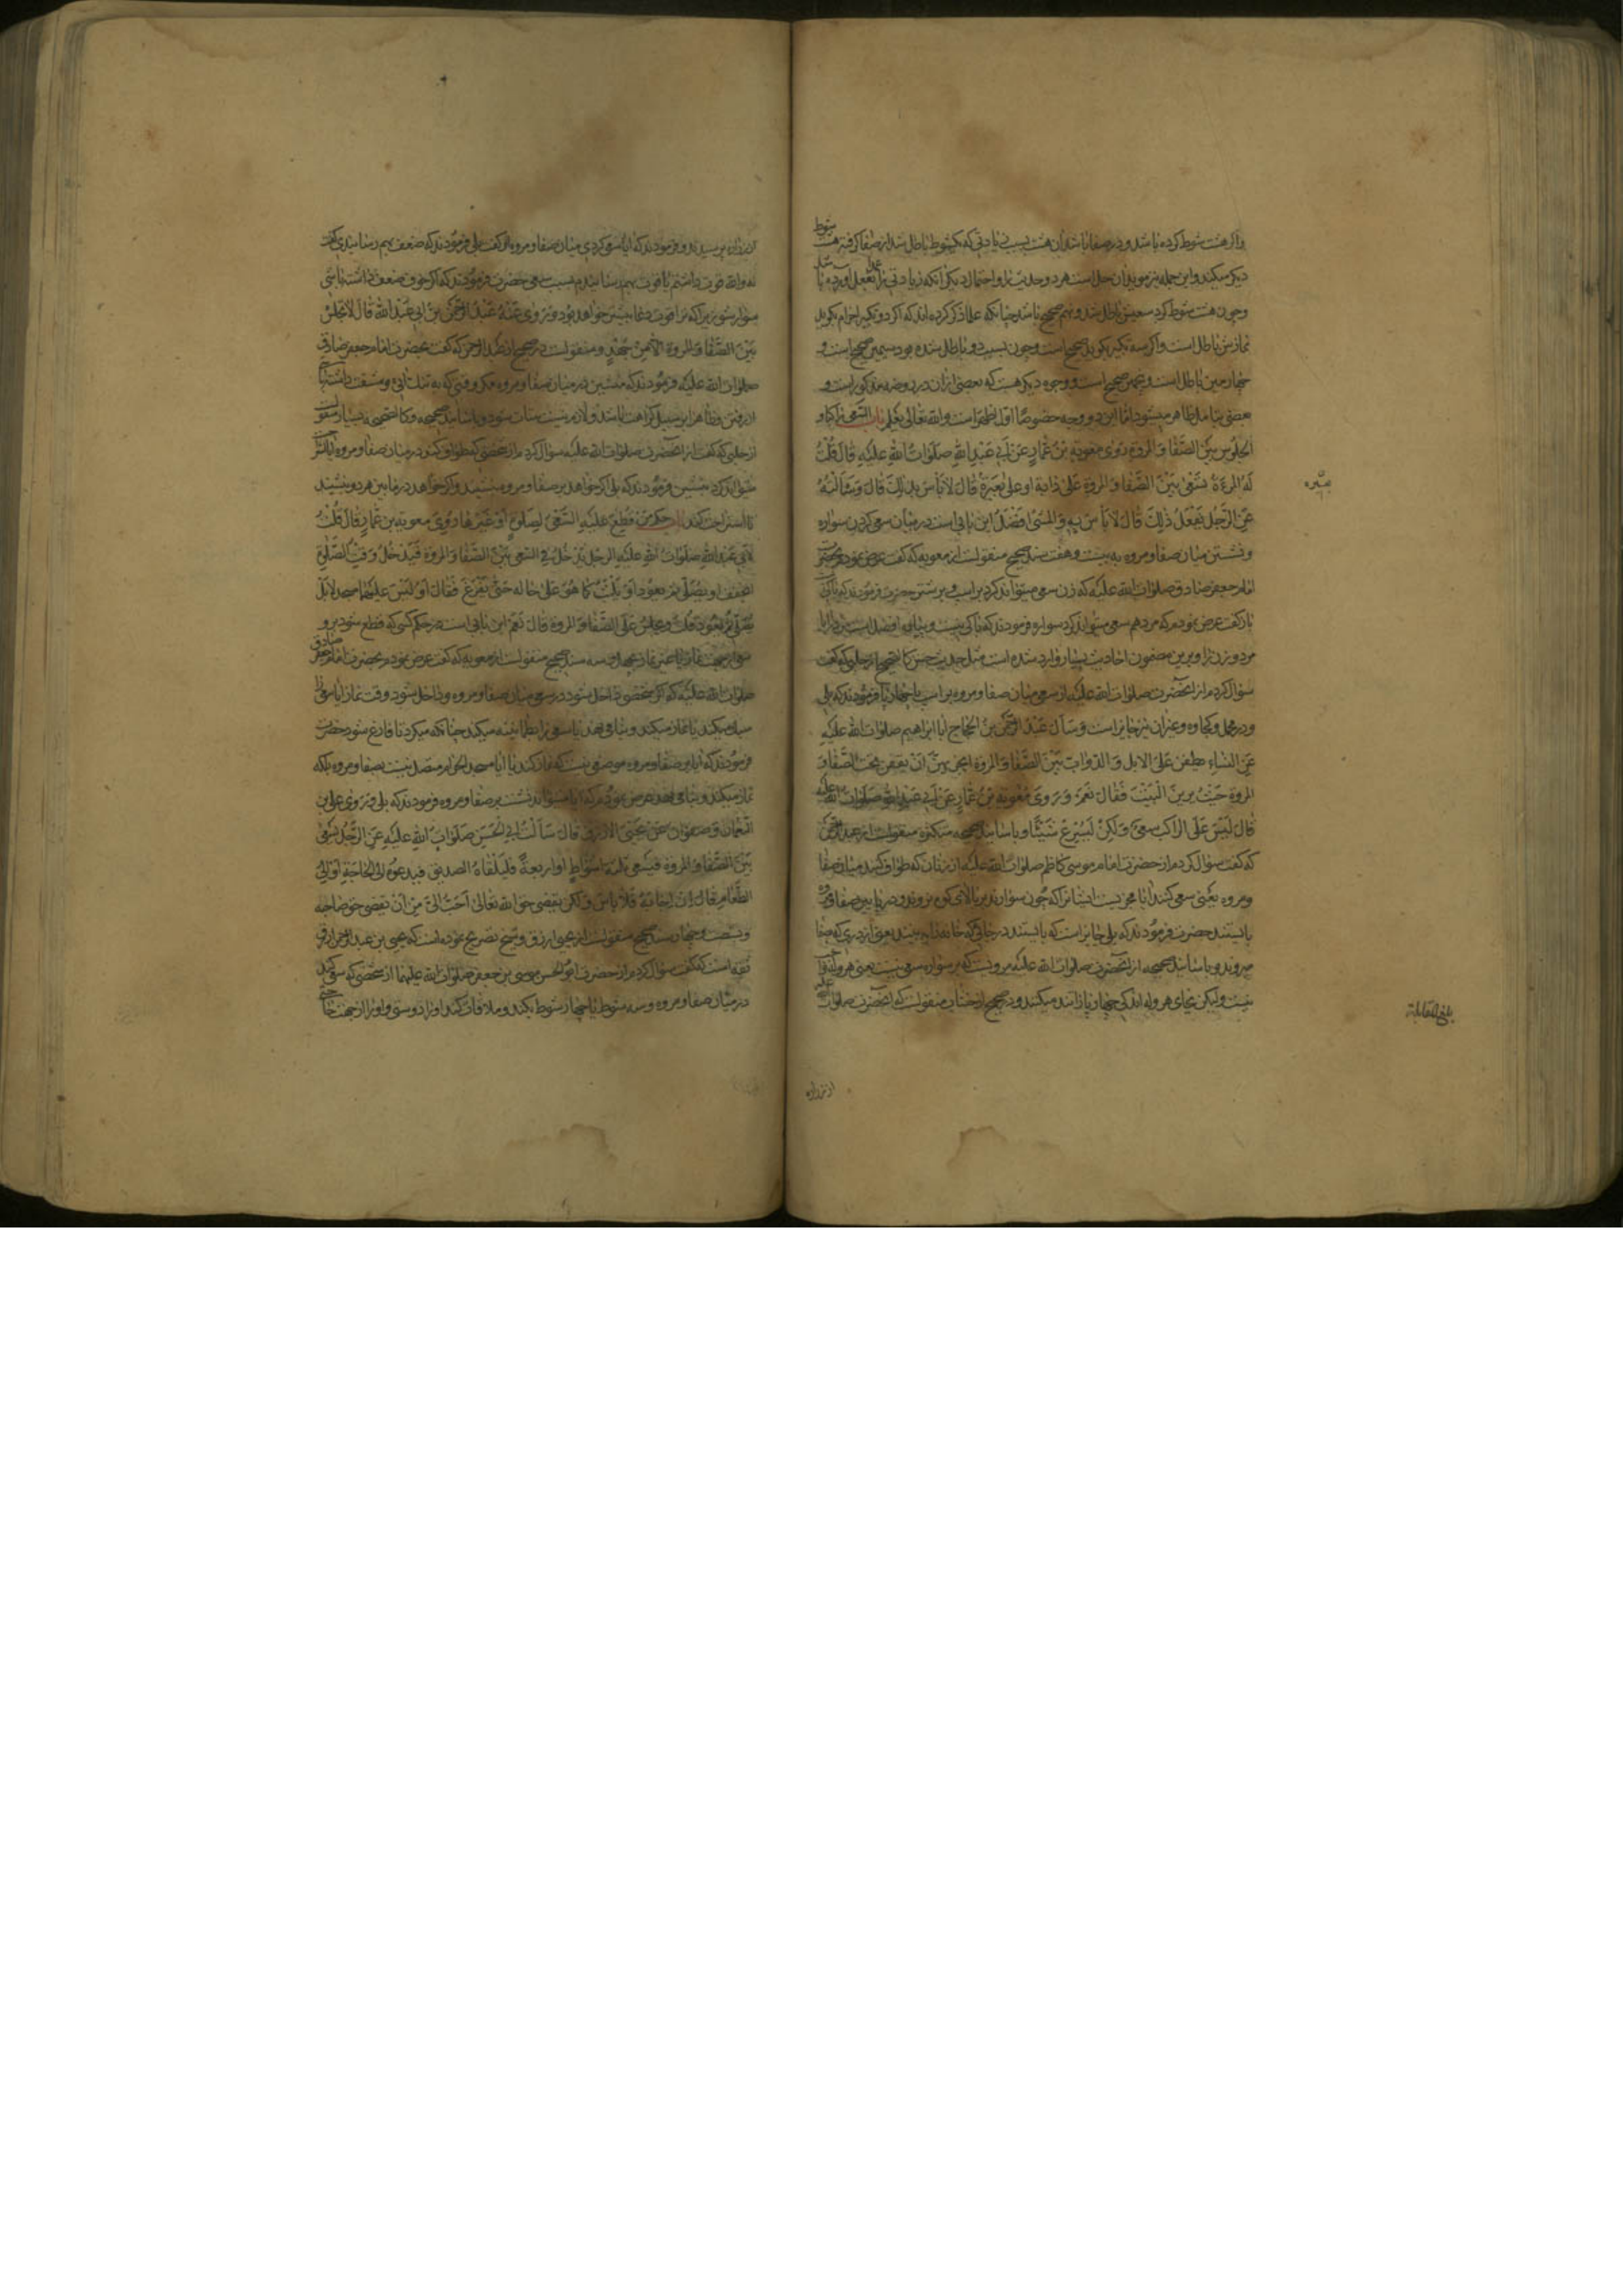 واگر هشت شوط کرده باشد و در صفا باشد آن هشت بسبب زیادتی که یکشوط باطل شد از صفا گرفته هشت شوط
دیگر میکند و این جمله نیز موید آن حمل است هر دو حدیث را و احتمال دیگر آنکه زیادتی را عمدا بفعل آورده باشد
و چون هشت شوط کرد سعیش باطل شد و نهم صحیح باشد چنانکه علما ذکر کرده اند که اگر دو تکبیر احرام بگوید
نمازش باطل است و اگر سه تکبیر بگوید صحیح است و چون بسبب دو باطل شده بود سیمین صحیح است و
چهارمین باطل است و پنجمین صحیح است و وجوه دیگر هست که بعضی از آن در روضه مذکور است و
بعضی بتامل ظاهر میشود اما این دو وجه خصوصا اول اظهر است والله تعالی یعلم باب السعی راکبا و
الجلوس بین الصفا و المروة روی معویة بن عمار عن ابی عبد الله صلوات الله علیه قال قلت
له المرءة تسعی بین الصفا و المروة علی دابة او علی بعیر قال لا باس بذلک قال و سالته
عن الرجل یفعل ذلک قال لا باس به و المشی افضل این بابی است در میان سعی کردن سواره
و نشستن میان صفا و مروه به بیست و هفت سند صحیح منقولست از معویه که گفت عرض نمودم بحضرت
امام جعفر صادق صلوات الله علیه که زن سعی میتواند کرد بر اسب و بر شتر حضرت فرمودند که باکی
باز گفت عرض نمودم که مرد هم سعی میتواند کرد سواره فرمودند که باکی نیست و پیاده افضل است
مرد و زن را و برین مضمون احادیث بسیار وارد شده است مثل حدیث حسن کالصحیح از حلبی که گفت
سؤال کردم از آنحضرت صلوات الله علیه از سعی میان صفا و مروه بر اسب یا چهارپا فرمودند که بلی
و در محمل و کجاوه و غیر آن نیز جایز است و سال عبد الرحمن بن الحجاج ابا ابراهیم صلوات الله علیه
عن النساء یطفن علی الابل و الدواب بین الصفا و المروة ایجزیهن ان یقفن تحت الصفا و
المروة حیث یرین البیت فقال نعم و روی معویة بن عمار عن ابی عبد الله صلوات الله علیه
قال لیس علی الراکب سعی و لکن لیسرع شیئا و باسانید صحیحه متکثره منقولست از عبد الرحمن
که گفت سؤال کردم از حضرت امام موسی کاظم صلوات الله علیه از زنان که طواف کنند میان صفا
و مروه یعنی سعی کنند آیا مجزیست ایشانرا که چون سوارند بر بالای کوه نروند و در پایین صفا و مروه
بایستند حضرت فرمودند که بلی جایز است که بایستند در جائی که خانه را به بینند یعنی از دری که بصفا
میروند و باسانید صحیحه از آنحضرت صلوات الله علیه مرویست که بر سواره سعی نیست یعنی هروله
نیست ولیکن بجای هروله اندکی چهارپا را تند میکنند و در صحیح از خشاب منقولست که آنحضرت صلوات الله علیه
بعیره
بلغ المقابلة
از زراره
از زراره پرسیدند و فرمودند که آیا سعی کردی میان صفا و مروه گفت بلی فرمودند که ضعف بهم رسانیدی گفت
نه والله قوت داشتم یا قوت بهم رسانیدم بسبب سعی حضرت فرمودند که اگر خوف ضعف داشته باشی
سوار شو زیرا که ترا قوت دعا بیشتر خواهد بود و روی عنه عبد الرحمن بن ابی عبد الله قال لا تجلس
بین الصفا و المروة الا من جهد و منقولست در صحیح از عبد الرحمن که گفت بحضرت امام جعفر صادق
صلوات الله علیه فرمودند که منشین در میان صفا و مروه مگر وقتی که به تنگ آیی و مشقت داشته باشی
از رفتن و ظاهرا بر سبیل کراهت باشد و لازم نیست و باسانید صحیحه و کالصحیحه بسیار منقولست
از حلبی که گفت از آنحضرت صلوات الله علیه سؤال کردم از شخصی که طواف کند در میان صفا و مروه آیا
میتواند کرد نشستن فرمودند که بلی اگر خواهد بر صفا و مروه بنشیند و اگر خواهد در مابین هر دو بنشیند
تا استراحت کند باب حکم من قطع علیه السعی لصلوة او غیرها روی معویة بن عمار قال قلت
لابی عبد الله صلوات الله علیه الرجل یدخل فی السعی بین الصفا و المروة فیدخل وقت الصلوة
ایخفف او یصلی ثم یعود او یلبث کما هو علی حاله حتی یفرغ فقال او لیس علیهما مسجد لا بل
یصلی ثم یعود قلت و یجلس علی الصفا و المروة قال نعم این بابی است در حکم کسی که قطع شود برو
سعی بجهت نماز یا غیر نماز بچهل و سه سند صحیح منقولست از معویه که گفت عرض نمودم بحضرت امام جعفر صادق
صلوات الله علیه که هر شخصی داخل شود در سعی میان صفا و مروه و داخل شود وقت نماز آیا سعی را
سبک میکند یا نماز میکند و بنا می نهد یا سعی را بطمانینه میکند چنانکه میکرد تا فارغ شود حضرت
فرمودند که آیا بر صفا و مروه موضعی نیست که نماز کند یا آیا مسجد الحرام متصل نیست بصفا و مروه بلکه
نماز میکند و بنا می نهد عرض نمودم که آیا میتواند نشست بر صفا و مروه فرمودند که بلی و روی علی بن
النعمان و صفوان عن یحیی الازرق قال سالت ابی الحسن صلوات الله علیه عن الرجل یسعی
بین الصفا و المروة فیسعی ثلثة اشواط او اربعة فیلقاه الصدیق فیدعوه الی الحاجة او الی
الطعام قال ان اجابه فلا باس و لکن یقضی حق الله تعالی احب الی من ان یقضی حق صاحبه
و بشصت و چهار سند صحیح منقولست از یحیی ازرق و شیخ تصریح نموده است که یحیی بن عبد الرحمن ازرق
ثقه است که گفت سؤال کردم از حضرت ابو الحسن موسی بن جعفر صلوات الله علیهما از شخصی که سعی کند
در میان صفا و مروه و سه شوط یا چهار شوط بکند و ملاقات کند او را دوستی و او را از جهت